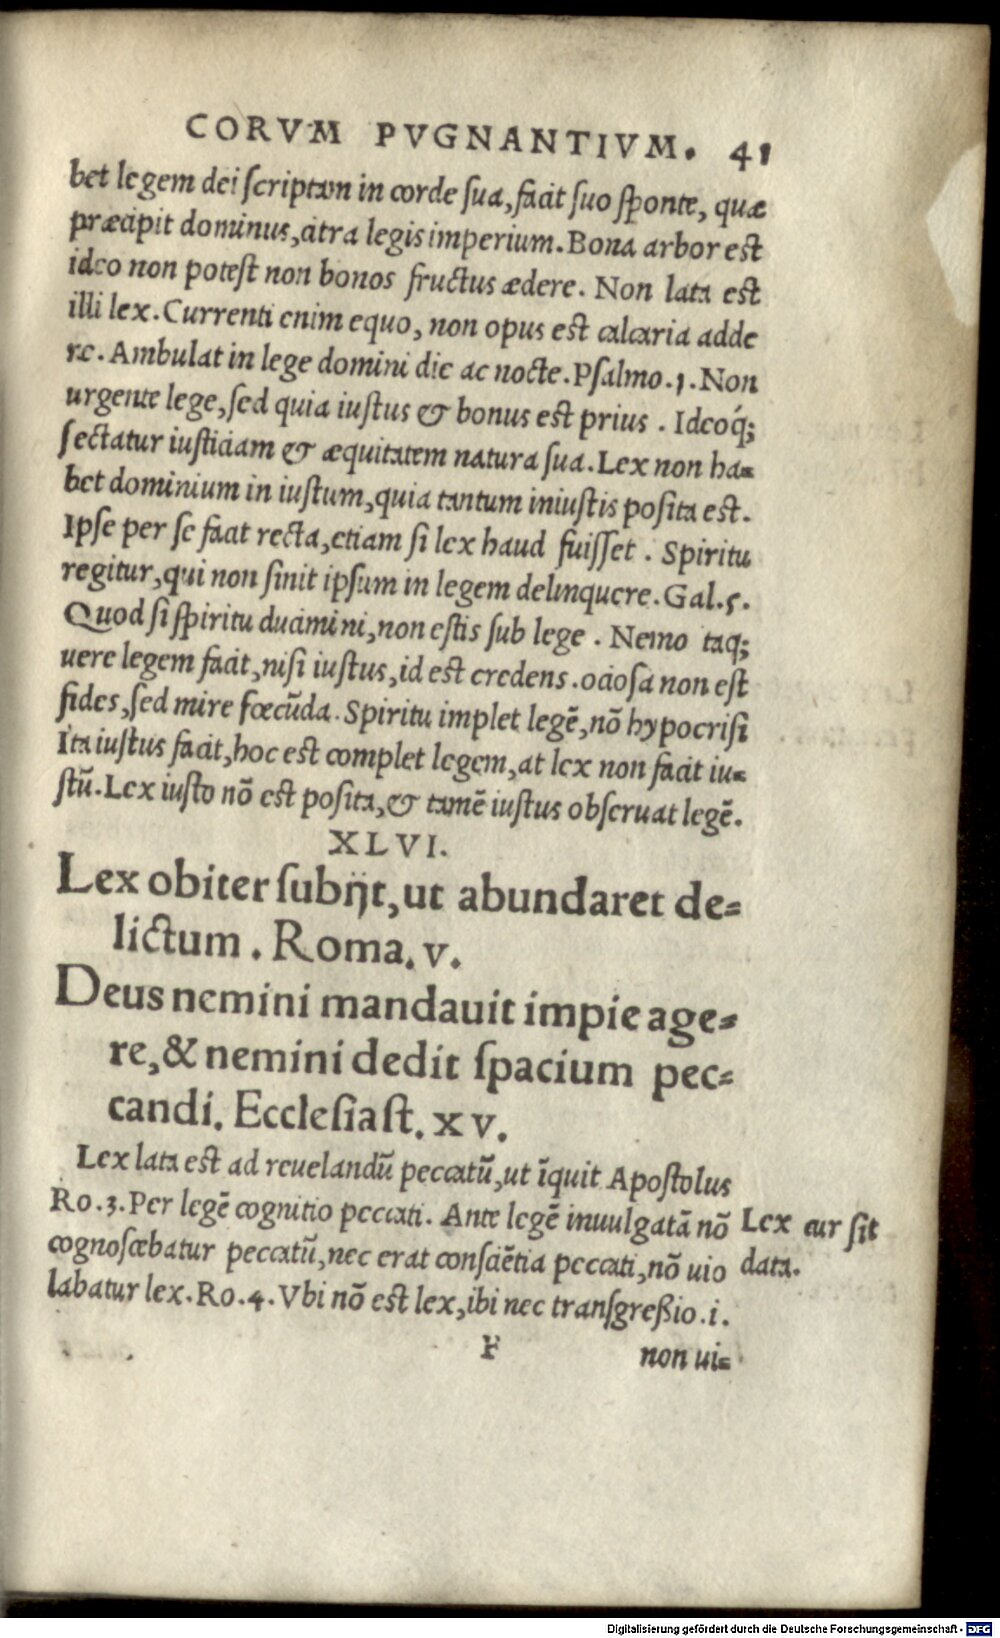 CORVM PVGNANTIVM. 41
bet legem dei ſcriptam in corde ſua, facit ſuo ſponte, quæ
præcipit dominus, citra legis imperium. Bona arbor est
ideo non poteſt non bonos fructus ædere. Non lata est
illi lex. Currenti enim equo, non opus est calcaria adde
re. Ambulat in lege domini die ac nocte. Pſalmo. 1. Non
urgente lege, ſed quia iuſtus & bonus est prius. Ideoq́;
ſectatur iuſticiam & æquitatem natura ſua. Lex non ha=
bet dominium in iuſtum, quia tantum iniuſtis poſita est.
Ipſe per ſe facit recta, etiam ſi lex haud fuiſſet. Spiritu
regitur, qui non ſinit ipſum in legem delinquere. Gal. 5.
Quod ſi ſpiritu ducimini, non eſtis ſub lege. Nemo itaq;
uere legem facit, niſi iuſtus, id est credens. ocioſa non eſt
fides, ſed mire fœcũda. Spiritu implet legẽ, nõ hypocriſi
Ita iuſtus facit, hoc est complet legem, at lex non facit iu=
ſtũ. Lex iuſto nõ est poſita, & tamẽ iuſtus obſeruat legẽ.
XLVI.
Lex obiter ſubijt, ut abundaret de=
lictum. Roma. v.
Deus nemini mandauit impie age=
re, & nemini dedit ſpacium pec=
candi. Eccleſiaſt. xv.
Lex lata est ad reuelandũ peccatũ, ut ĩquit Apoſtolus
Ro. 3. Per legẽ cognitio peccati. Ante legẽ inuulgatã nõ
cognoſcebatur peccatũ, nec erat conſciẽtia peccati, nõ uio
labatur lex. Ro. 4. Vbi nõ est lex, ibi nec tranſgreßio. i.
Lex cur ſit
data.
F non ui=
Digitalisierung gefördert durch die Deutsche Forschungsgemeinschaft - DFG